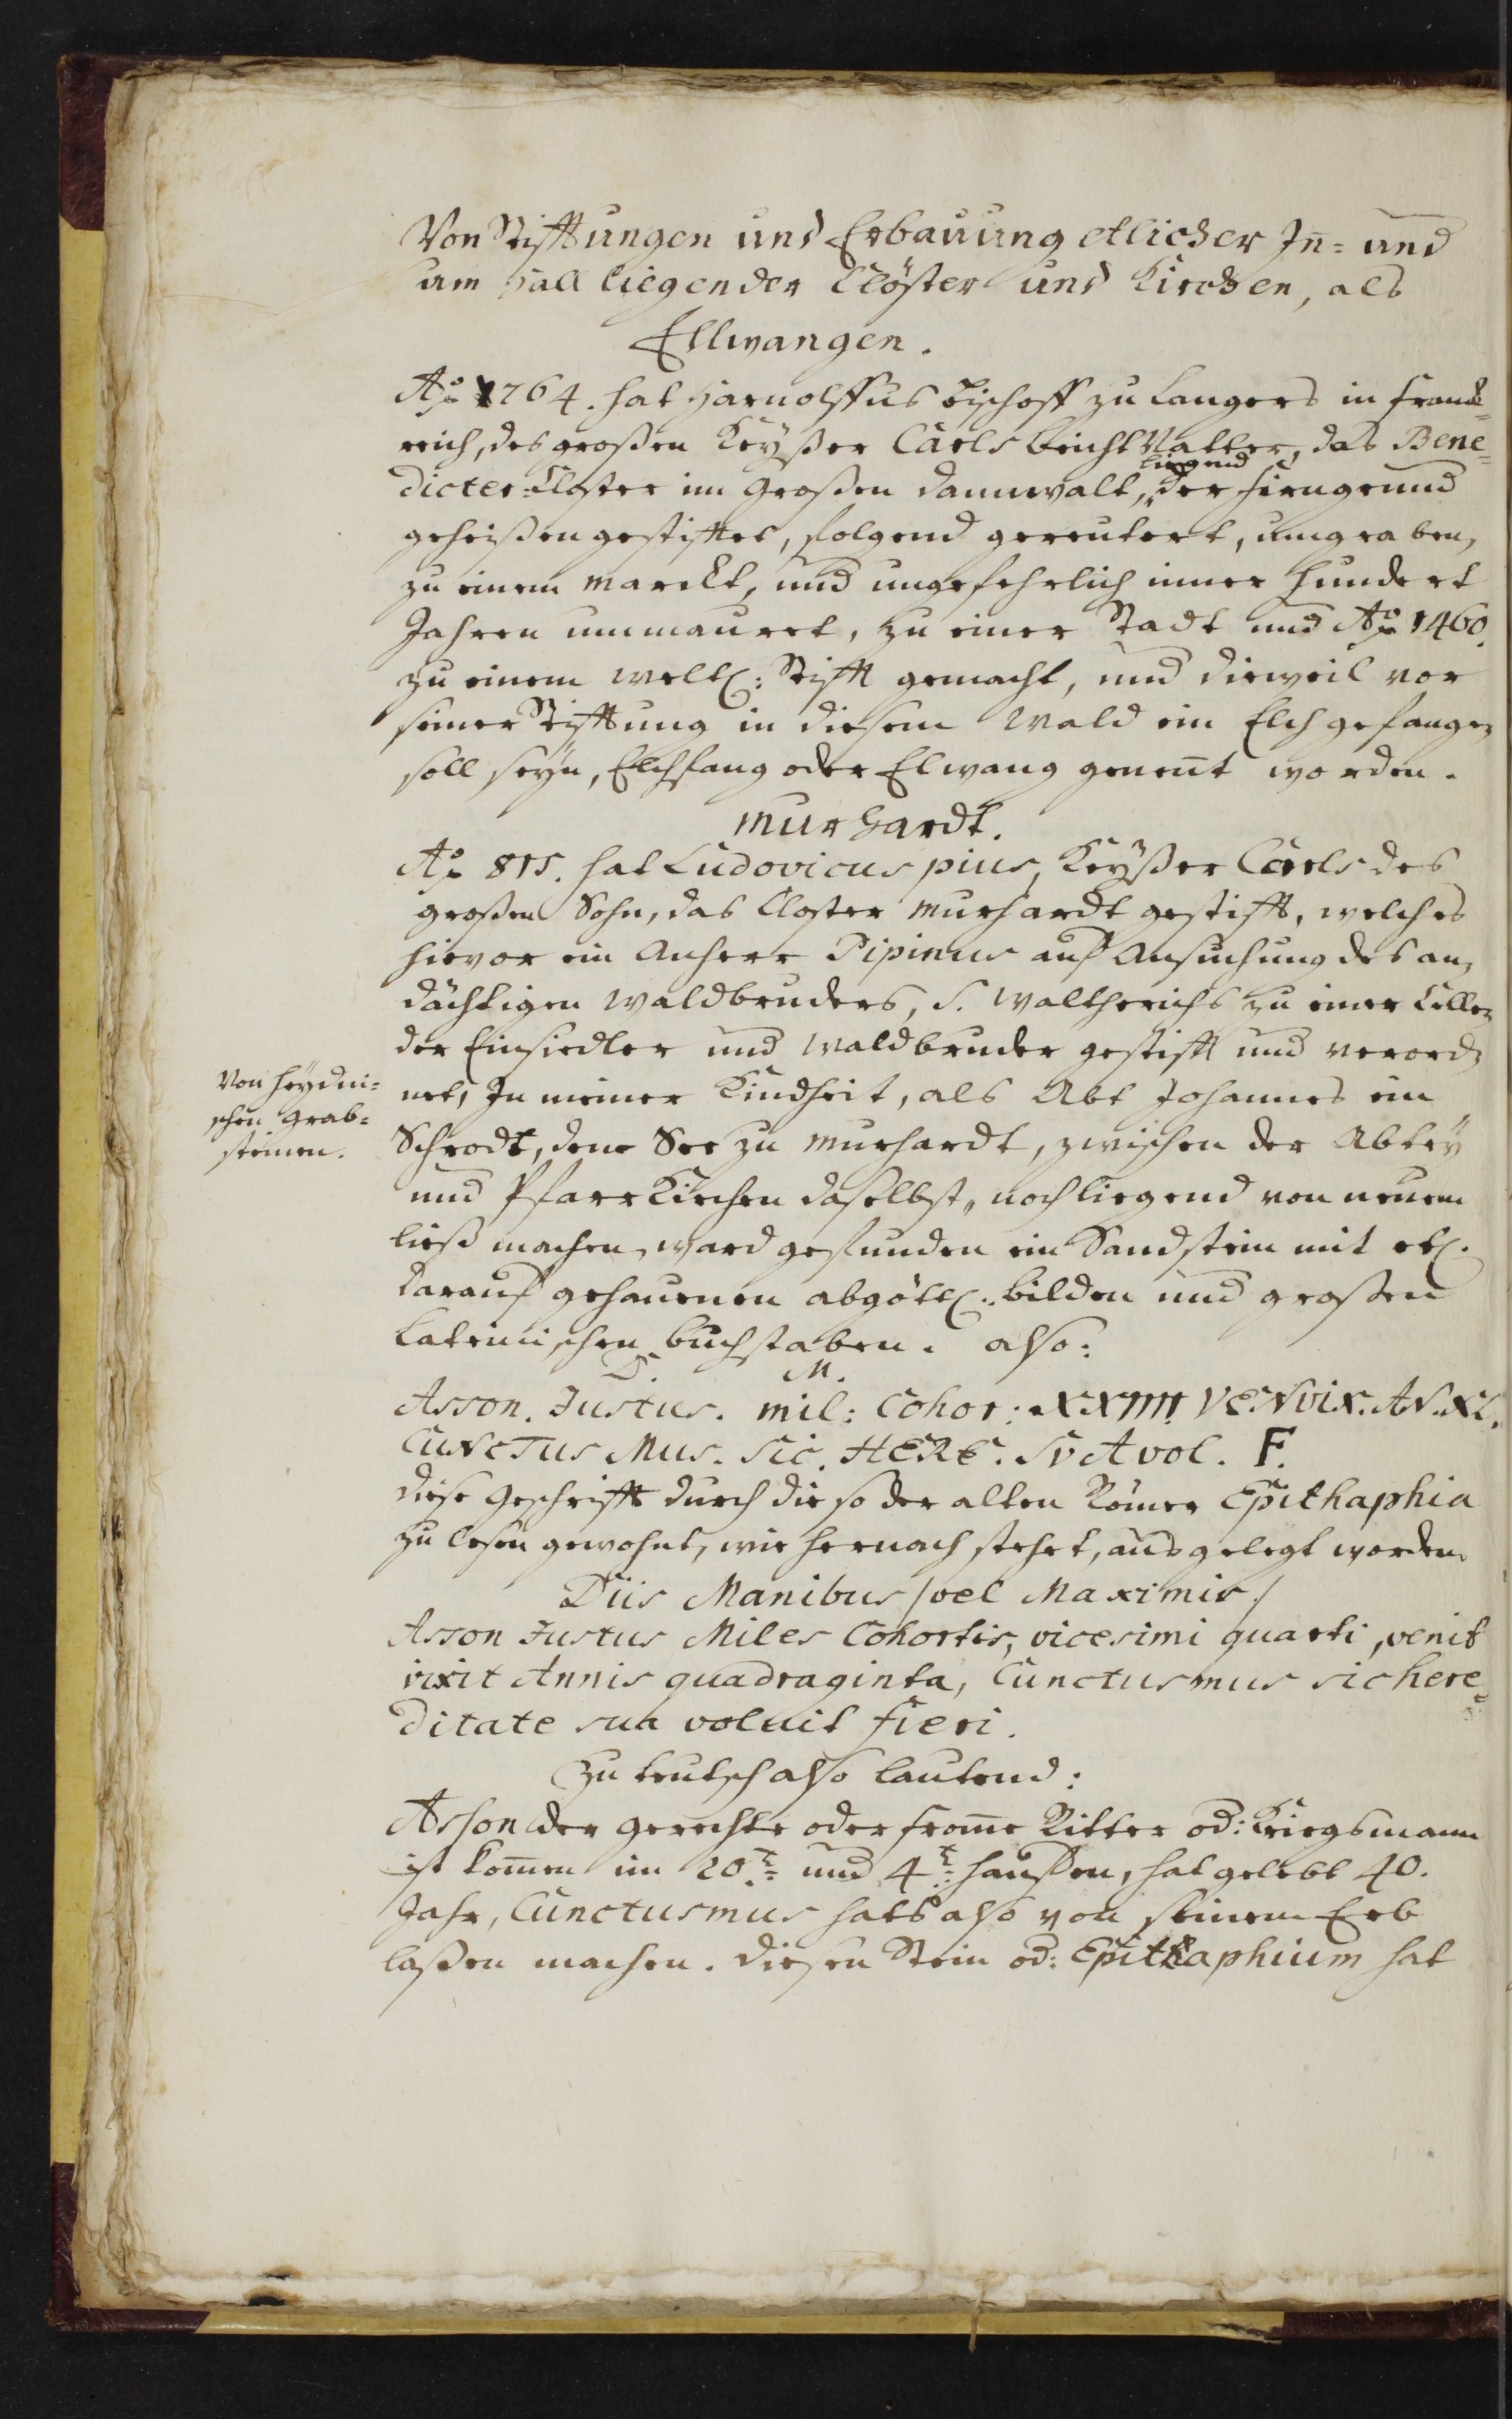 Von Stifftungen und Erbauung etlicher In- und
um Hall liegender Clöster und Kirchen, als
Ellwangen.
Aō 764. hat Harnolffus Bischoff zu Langers in Franck=
reich, des großen Keyßer Carls BeichtVatter, das Bene=
dicter-Closter im Großen dannwalt, liegend der Firngrund
geheißen gestifftet, folgend gereutert, umgraben,
zu einem Marckt, und ungefehrlich inner hundert
Jahren ummauret, zu einer Stadt und Aō 1460.
zu einem weltl: Stifft gemacht, und dieweil vor
seiner Stifftung in diesem Wald ein Elch gefangen
soll seyn, Elchfang oder Elwang genent worden.
Murhardt.
Aō 815. hat Ludovicus pius, Keyßer Carls des
großen Sohn, das Closter Murhardt gestifft, welches
hievor ein Anherr Pipinus auf Ansuchung des an=
dächtigen Waldbruders, S. Waltherichs zu einer Cellen
der Einsiedler und Waldbruder gestifft und verord=
Von Heydni=
schen Grab=
steinen.
net, In meiner Kindheit, als Abt Johannes ein
Schrodt, den See zu Murhardt, zwischen der Abtey
und PfarrKirchen daselbst, noch liegend von neuem
ließ machen, ward gefunden ein Sandstein mit etl.
darauf gehauenen abgött. bilden und großen
Lateinischen buchstaben. also:
D. M.
Asson. Justus. mil: Cohor: XXIIII VENVIX. AN. XL.
CUNCTUS MUS. SIC. HERE. SVA VOL. F.
diese Geschrifft durch die so der alten Römer Epithaphia
zu lesen gewohnt, wie hernach stehet, ausgelegt worden
Diis Manibus /vel Maximis/
Asson Justus Miles Cohortis, vicesimi quarti, venit
vixit Annis quadraginta, Cunctusmus sic here=
ditate sua voluit fieri.
Zu teutsch also lautend:
Asson der gerechte oder from̄e Ritter od: Kriegsmann
ist kom̄en im 20.t= und 4.t= Haußen, hat gelebt 40.
Jahr, Cunctusmus hats also von seinem Erb
laßen machen. Diesen Stein od: Epithaphium hat